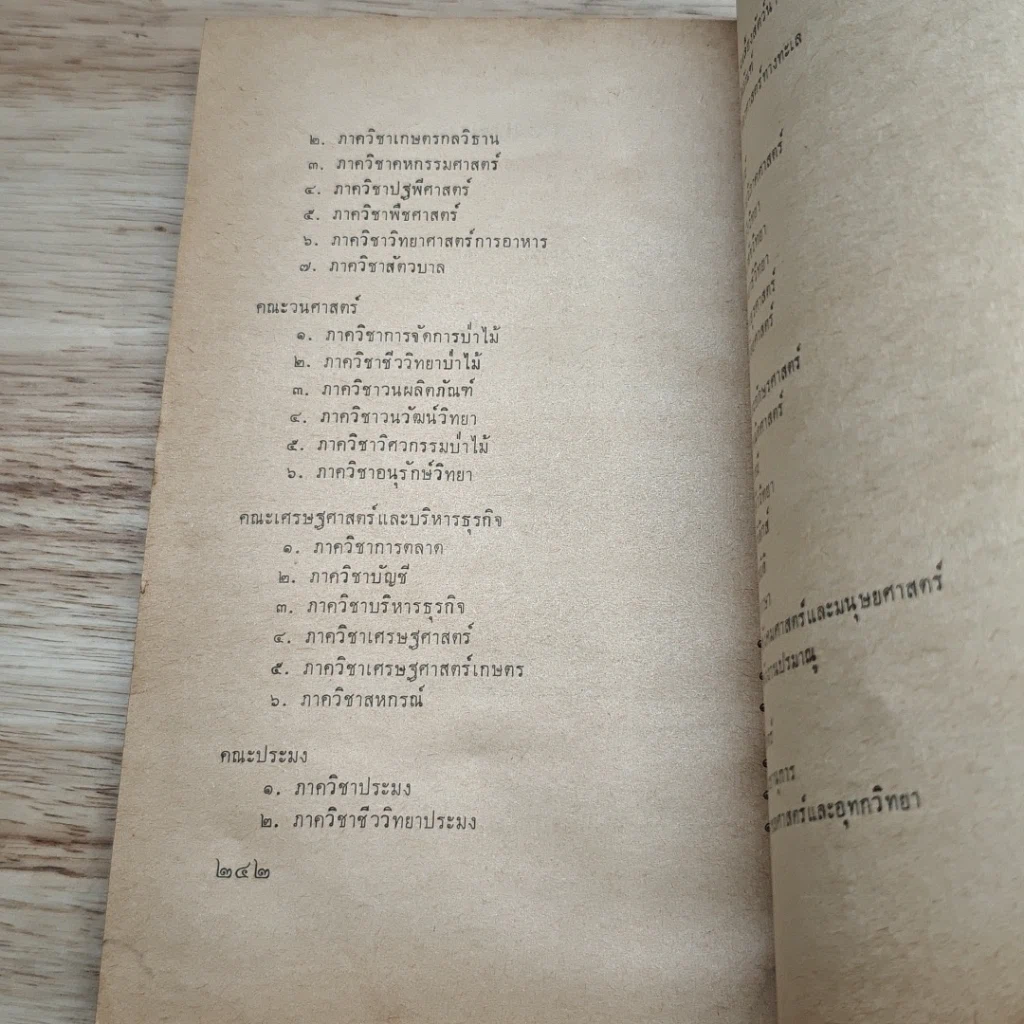 ๒. ภาควิชาเกษตรกลวิธาน
๓. ภาควิชาคหกรรมศาสตร์
๔. ภาควิชาปฐพีศาสตร์
๕. ภาควิชาพืชศาสตร์
๖. ภาควิชาวิทยาศาสตร์การอาหาร
๗. ภาควิชาสัตวบาล
คณะวนศาสตร์
๑. ภาควิชาการจัดการป่าไม้
๒. ภาควิชาชีววิทยาป่าไม้
๓. ภาควิชาวนผลิตภัณฑ์
๔. ภาควิชาวนวัฒน์วิทยา
๕. ภาควิชาวิศวกรรมป่าไม้
๖. ภาควิชาอนุรักษ์วิทยา
คณะเศรษฐศาสตร์และบริหารธุรกิจ
๑. ภาควิชาการตลาด
๒. ภาควิชาบัญชี
๓. ภาควิชาบริหารธุรกิจ
๔. ภาควิชาเศรษฐศาสตร์
๕. ภาควิชาเศรษฐศาสตร์เกษตร
๖. ภาควิชาสหกรณ์
คณะประมง
๑. ภาควิชาประมง
๒. ภาควิชาชีววิทยาประมง
๒๔๒
ศาสตร์ทางทะเล
ศาสตร์และมนุษยศาสตร์
ศาสตร์และอุทกวิทยา